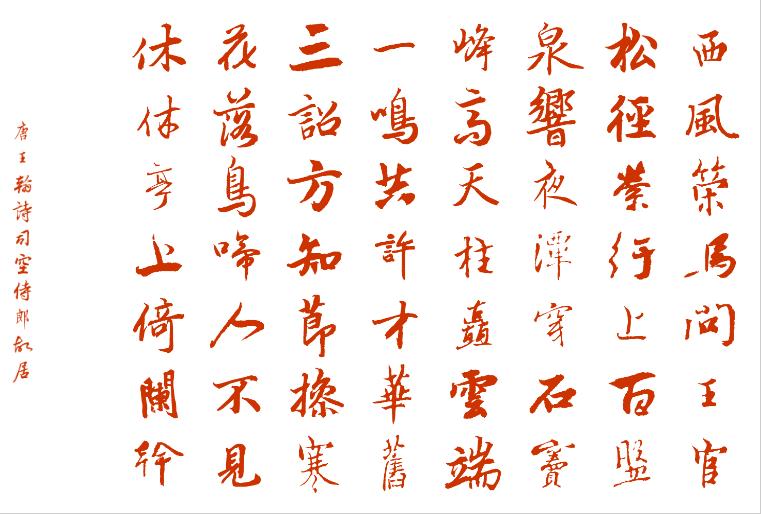 西風策馬問王官
松徑縈行上百盤
泉響夜潭穿石竇
峰高天柱矗雲端
一鳴共許才華舊
三詔方知節操寒
花落鳥啼人不見
休休亭上倚闌幹
唐王翰詩司空侍郎故居